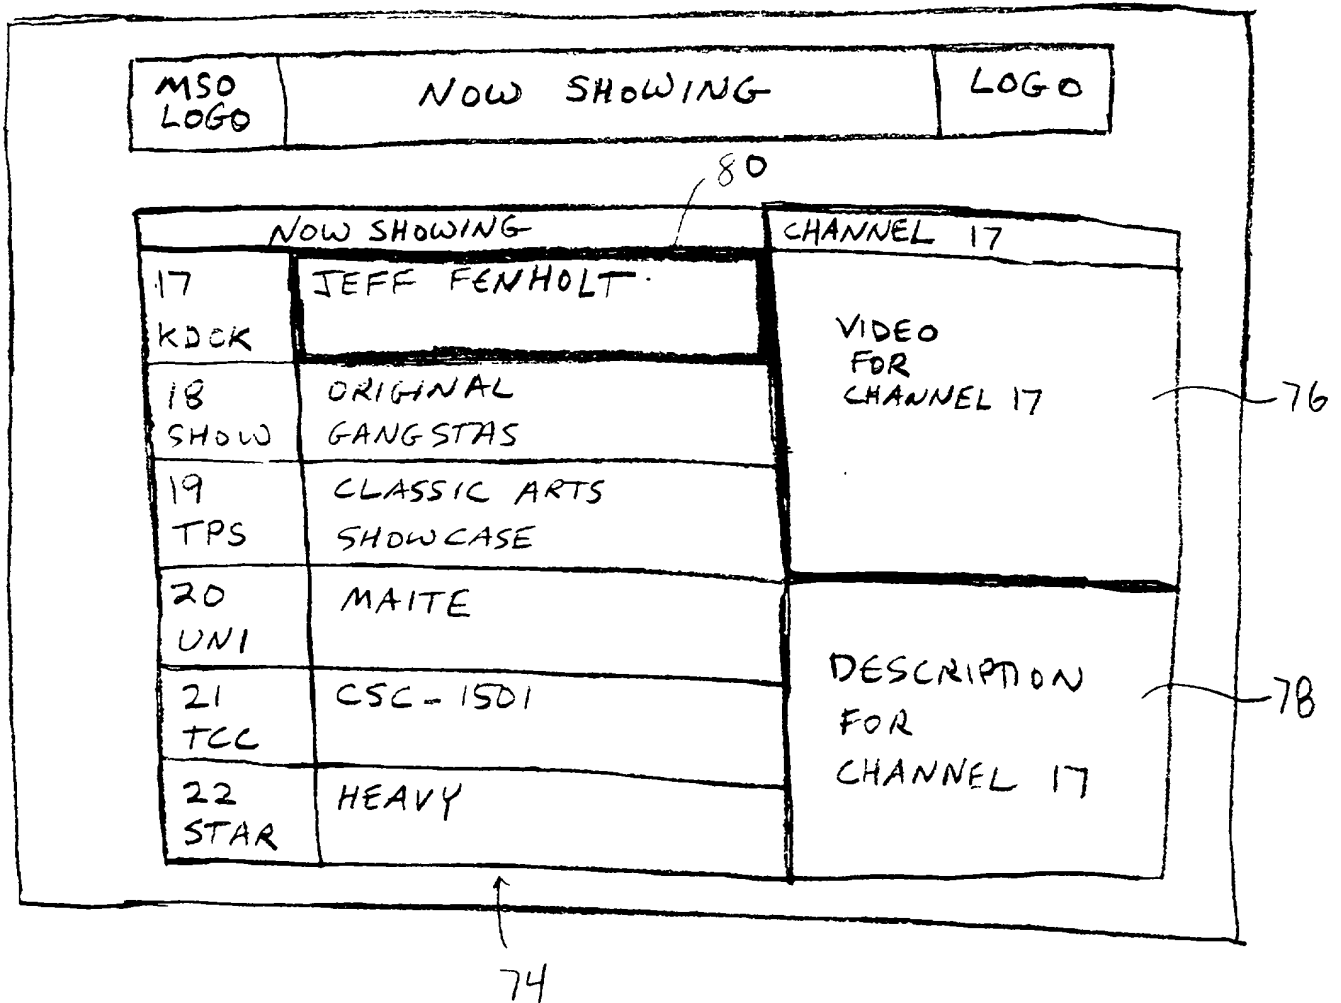 MSO
LOGO
NOW SHOWING
LOGO
80
NOW SHOWING
CHANNEL 17
17
KDCK
JEFF FENHOLT.
18
SHOW
ORIGINAL
GANGSTAS
19
TPS
CLASSIC ARTS
SHOWCASE
20
UNI
MAITE
21
TCC
CSC-1501
22
STAR
HEAVY
VIDEO
FOR
CHANNEL 17
76
DESCRIPTION
FOR
CHANNEL 17
78
74